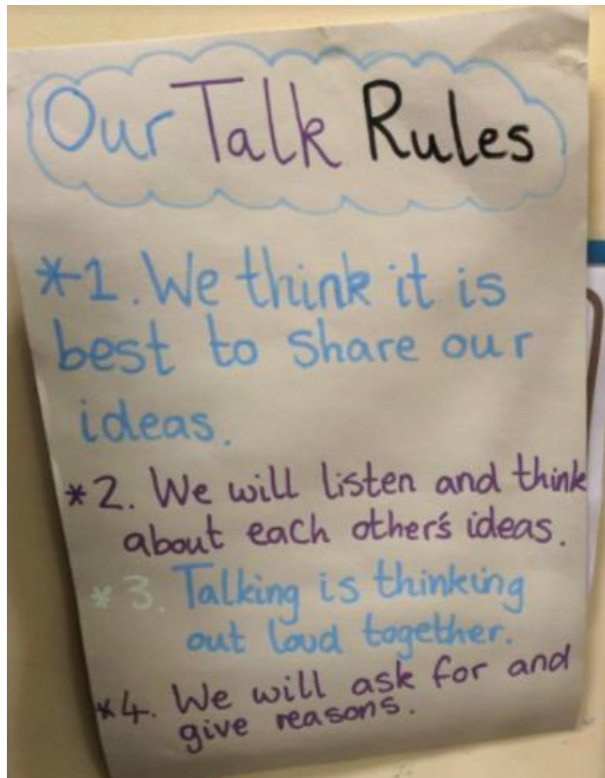 Our Talk Rules
*1. We think it is
best to share our
ideas.
*2. We will listen and think
about each other's ideas.
*3. Talking is thinking
out loud together.
*4. We will ask for and
give reasons.